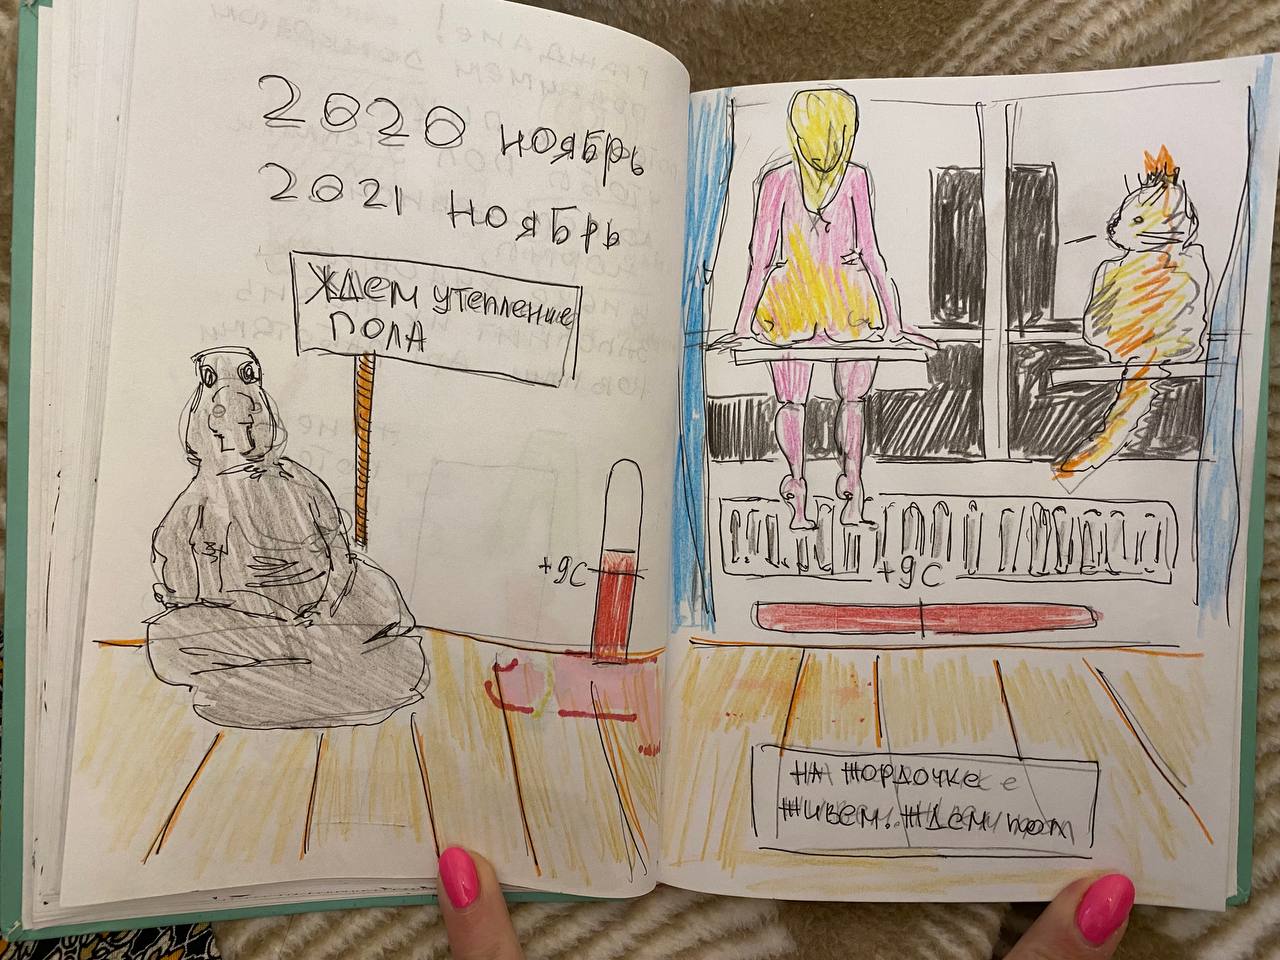 2020 ноябрь
2021 ноябрь
Ждем утепление
пола
+9С
+9С
НА ЖОРДОЧКЕ
ЖИВЕМ. ЖДЕМ пол